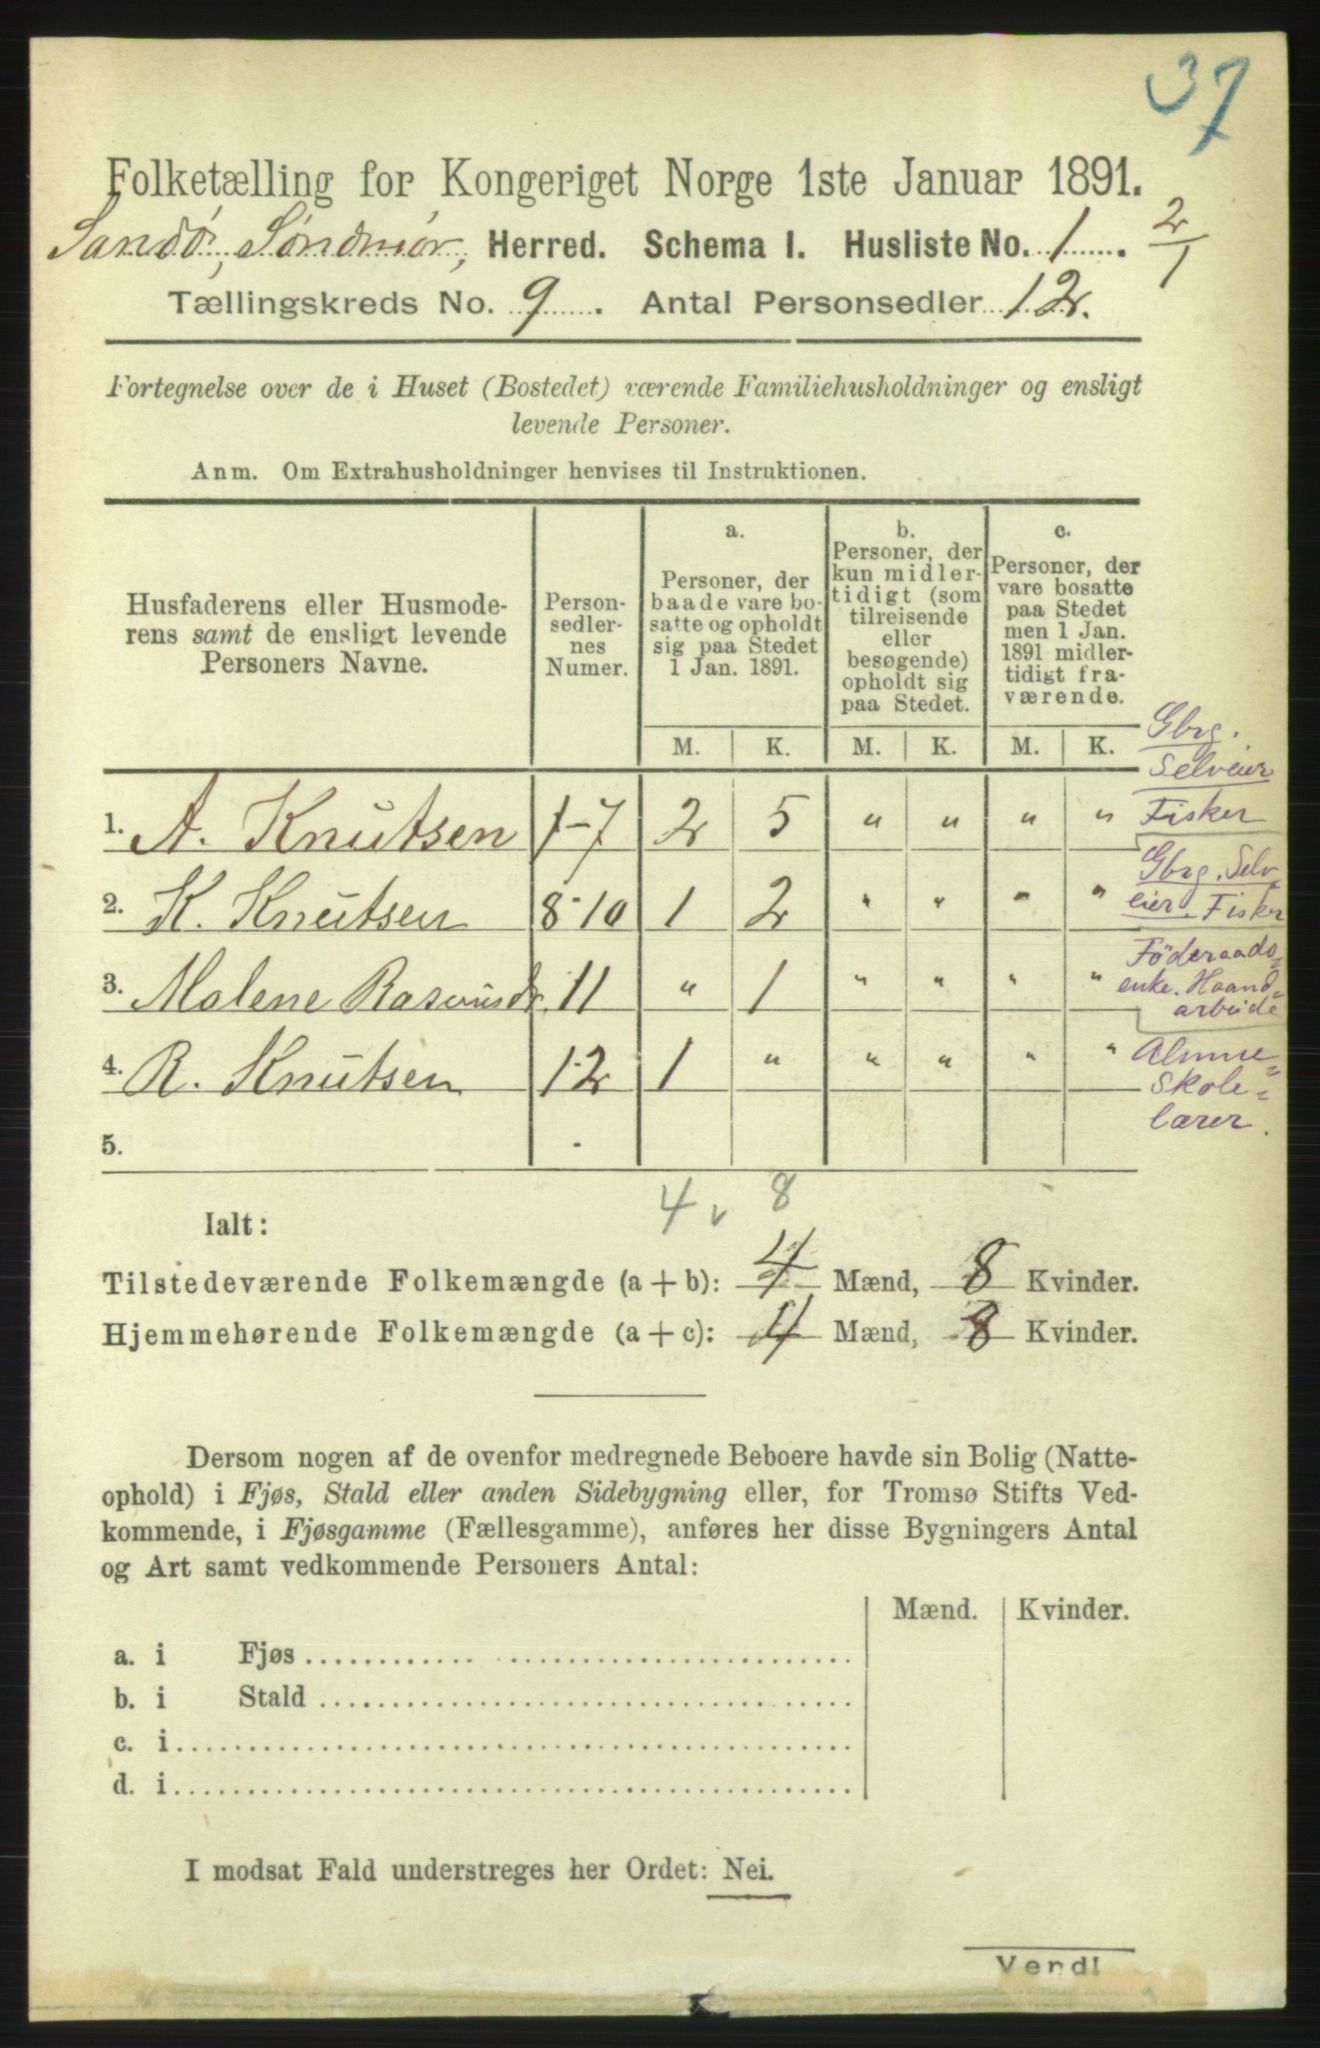 37
Folketælling for Kongeriget Norge 1ste Januar 1891.
Sandö, Söndmör, Herred. Schema I. Husliste No. 1. 2/1
Tællingskreds No. 9. Antal Personsedler 12.
Fortegnelse over de i Huset (Bostedet) værende Familiehusholdninger og ensligt
levende Personer.
Anm. Om Extrahusholdninger henvises til Instruktionen.
Husfaderens eller Husmode-
rens samt de ensligt levende
Personers Navne.
Person-
sedler-
nes
Numer.
a.
Personer, der
baade vare bo-
satte og opholdt
sig paa Stedet
1 Jan. 1891.
b.
Personer, der
kun midler-
tidigt (som
tilreisende
eller
besøgende)
opholdt sig
paa Stedet.
c.
Personer, der
vare bosatte
paa Stedet
men 1 Jan.
1891 midler-
tidigt fra-
værende.
M. K. M. K. M. K.
Gbrg.
Selveier
Fisker
1. A. Knutsen 1-7 2 5 " " " "
Gbrg. Selv-
eier. Fisker
2. K. Knutsen 8-10 1 2 " " " "
Föderaads-
enke. Haand-
arbeide
3. Malene Rasmusdr. 11 " 1 " " " "
Almue-
skole-
lærer.
4. R. Knutsen 12 1 " " " " "
5. -
4 v 8
Ialt:
Tilstedeværende Folkemængde (a + b): 4 Mænd, 8 Kvinder.
Hjemmehørende Folkemængde (a + c): 4 Mænd, 8 Kvinder.
Dersom nogen af de ovenfor medregnede Beboere havde sin Bolig (Natte-
ophold) i Fjøs, Stald eller anden Sidebygning eller, for Tromsø Stifts Ved-
kommende, i Fjøsgamme (Fællesgamme), anføres her disse Bygningers Antal
og Art samt vedkommende Personers Antal:
Mænd. Kvinder.
a. i Fjøs
b. i Stald
c. i
d. i
I modsat Fald understreges her Ordet: Nei.
Vend!